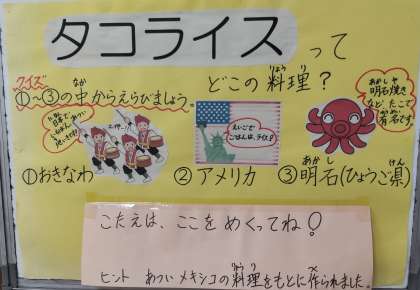 タコライスって
どこの料理？
りょうり
クイズ
①～③の中からえらびましょう。
なか
えいごで
ごはんは、ライス？
あかしや
明石焼き
など、たこで
有名です
ゆうめい
①おきなわ
②アメリカ
③明石(ひょうご県)
あかし
けん
こたえは、ここをめくってね！
ヒント　あついメキシコの料理をもとに作られました。
りょうり
つく